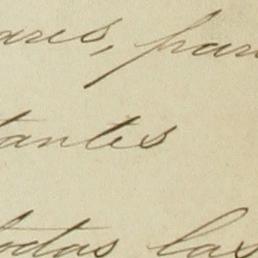 ares, par
tantes
todas las